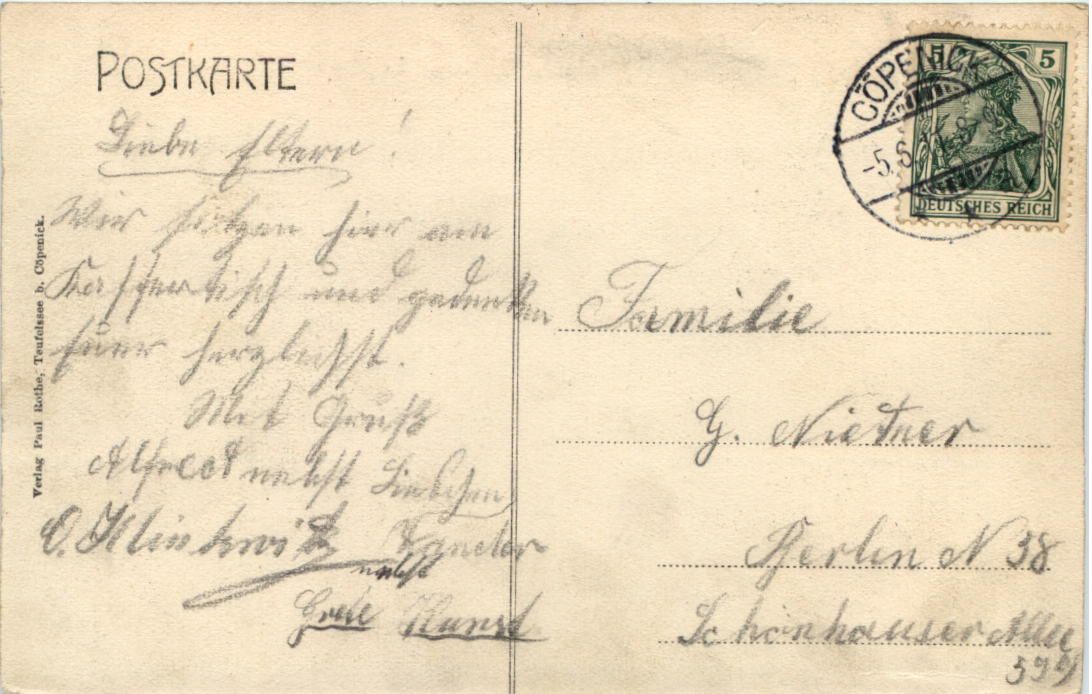 POSTKARTE
Liebe Eltern!
Wir sitzen hier am
Kaffeetisch und gedenken
Euer herzlichst.
Mit Gruß
Alfred nebst Lieschen
O. Klinkwitz
nebst
Grete Kunst
Verlag Paul Rothe, Teufelssee b. Cöpenick.
CÖPENICK
-5.6.
5 5
DEUTSCHES REICH
Familie
G. Nietner
Berlin N 38
Schönhauser Allee